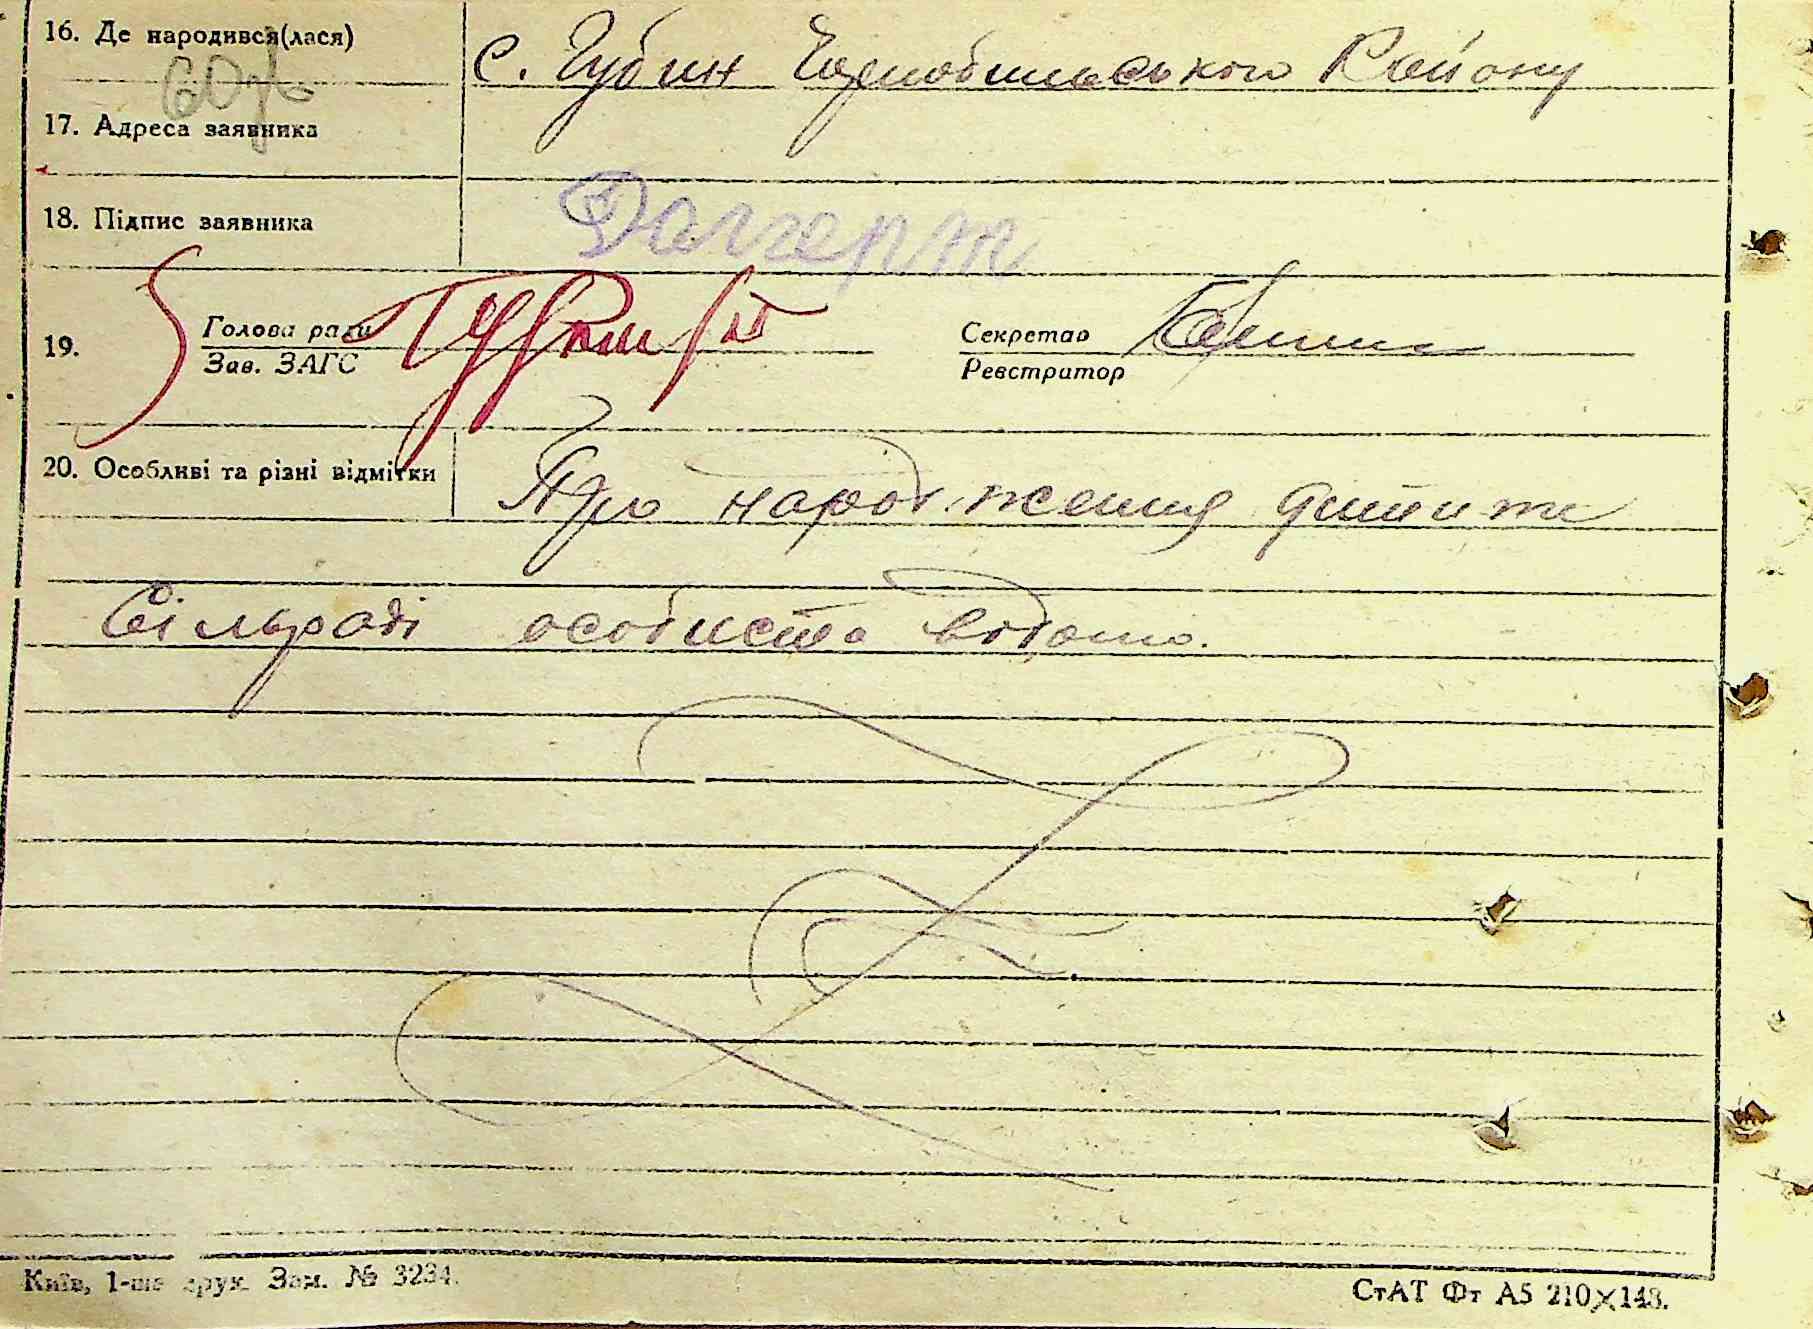 16. Де народився(лася) с. Губин Чорнобильського Району
17. Адреса заявника
18. Підпис заявника
19. Голова ради Секретар
Зав. ЗАГС Реєстратор
20. Особливі та різні відмітки Про народження дитини
Сільраді особисто відомо.
Київ, 1-ша друк. Зам. № 3234.
СтАТ Фт А5 210×148.